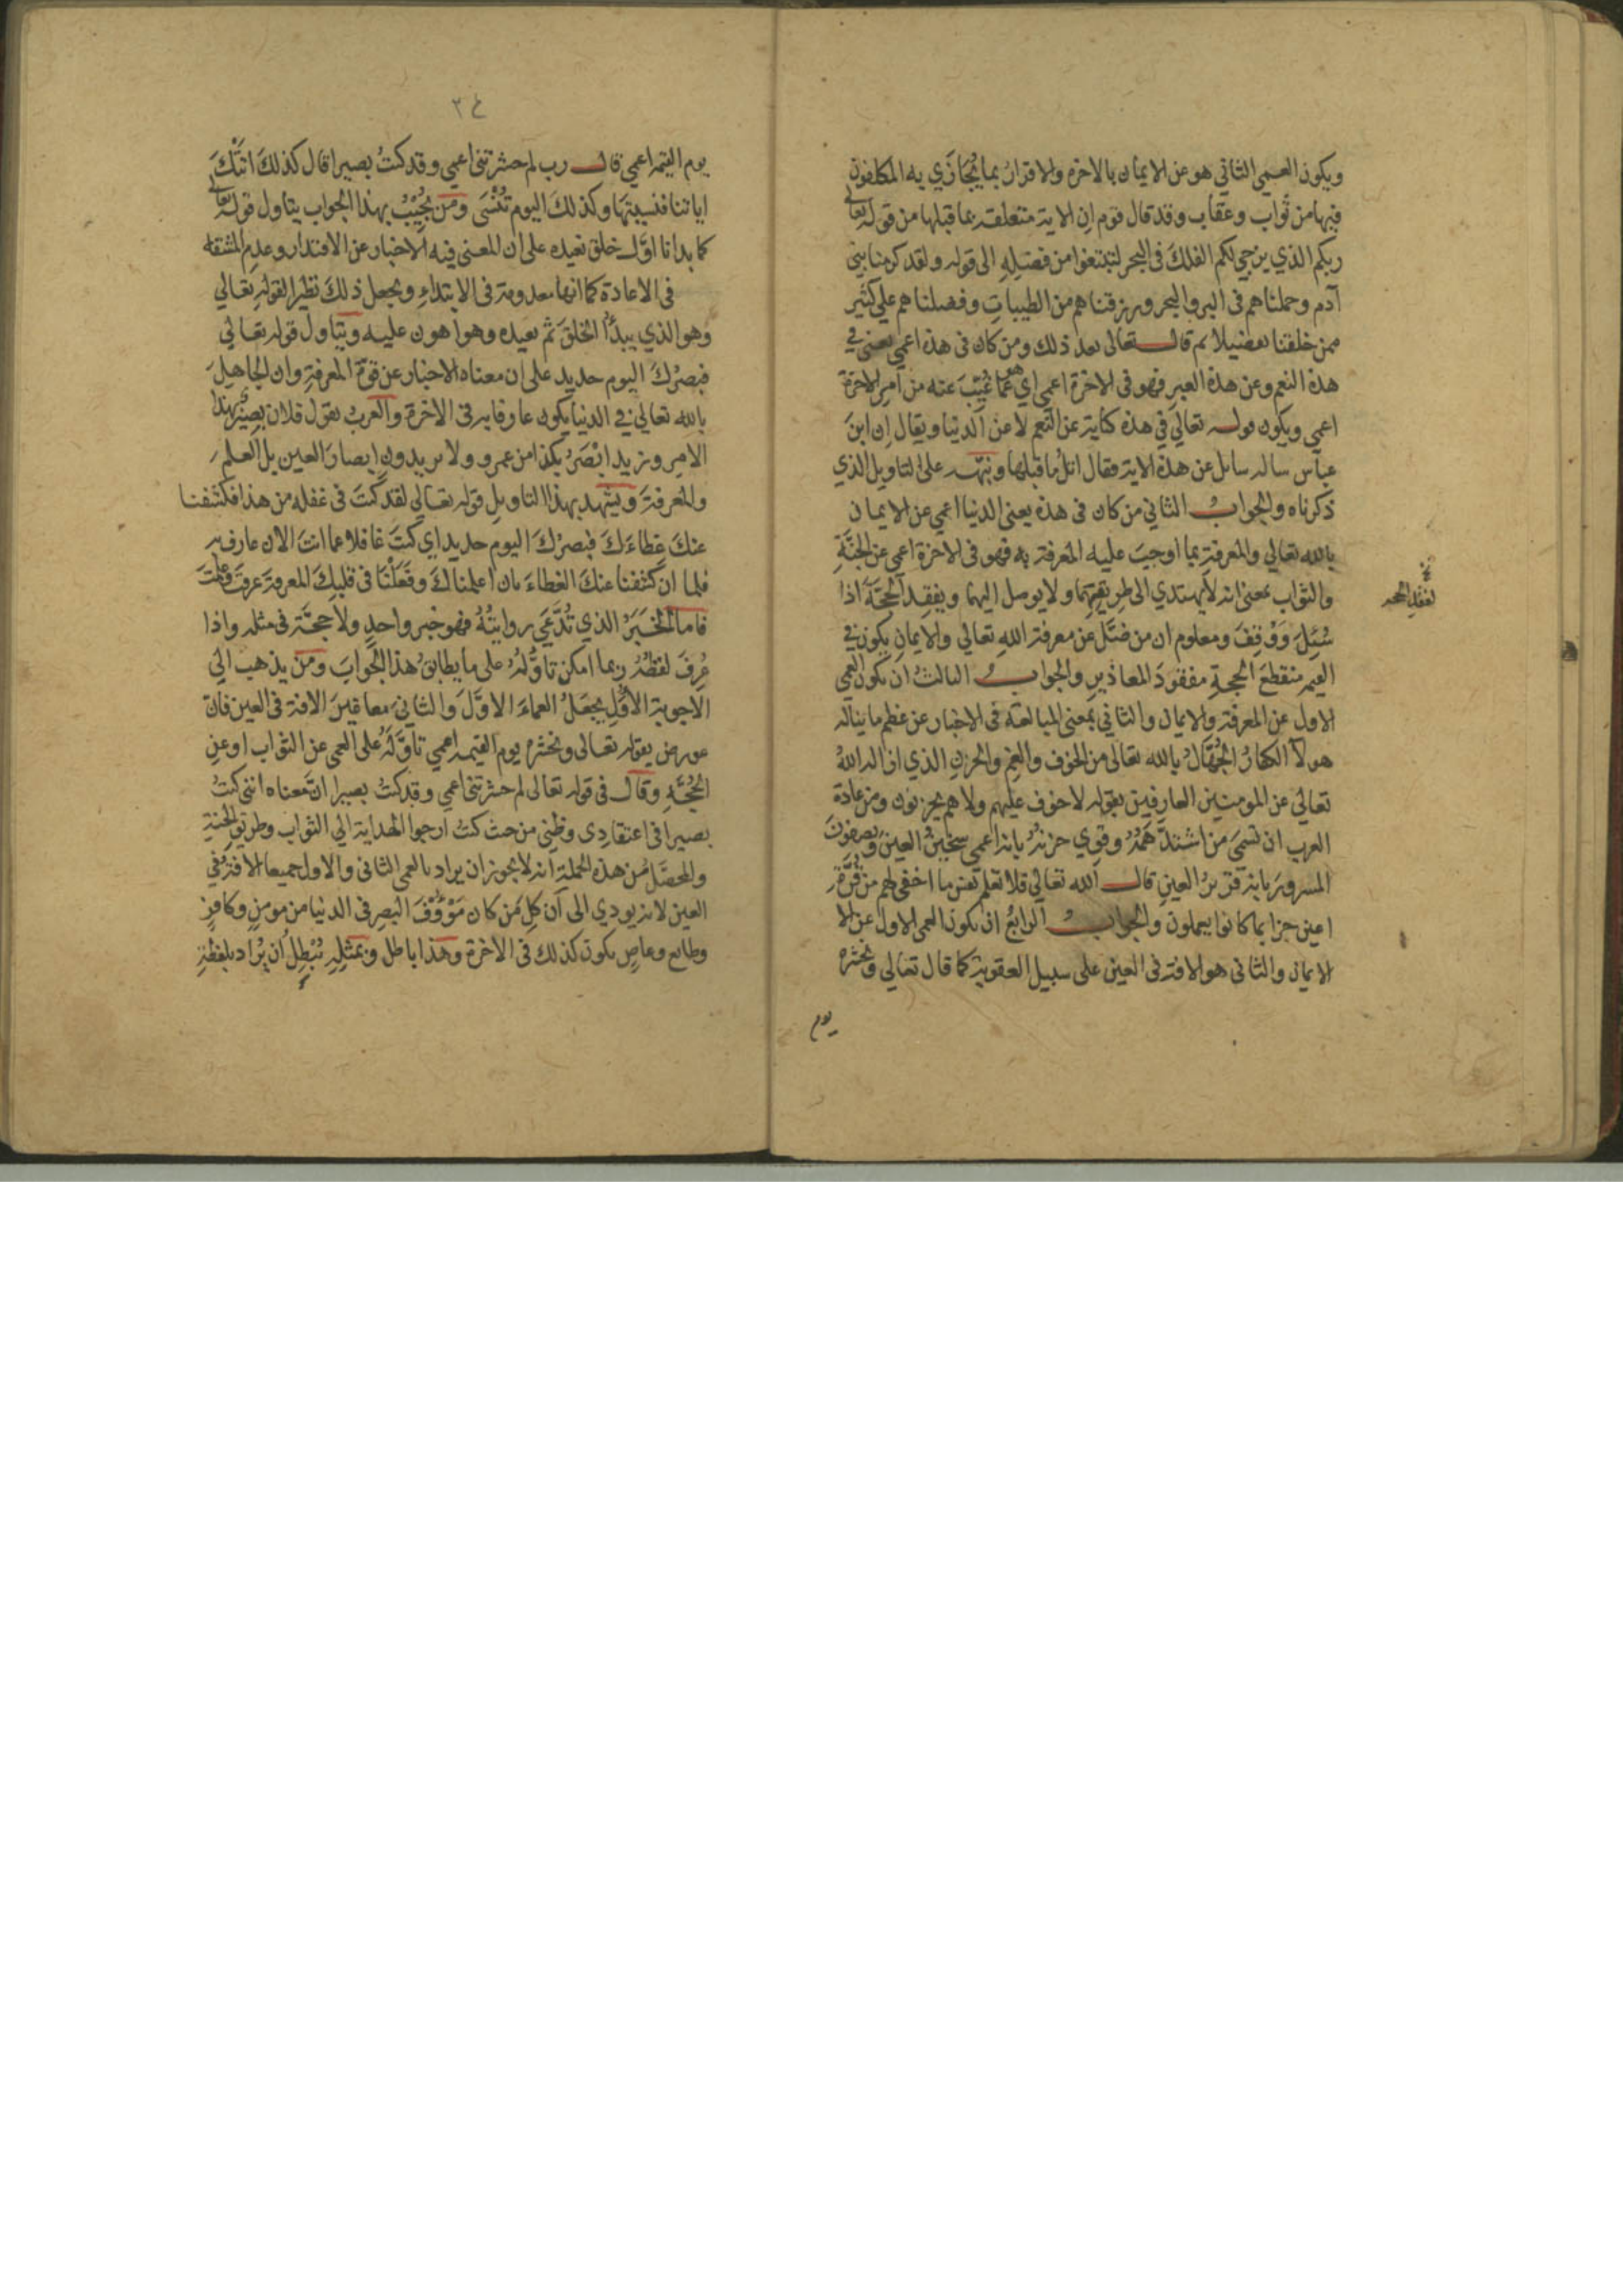 ويكون العمي الثاني هو عن الايمان بالاخرة والاقرار بما يُجَازَي به المكلفون
فيها من ثواب وعقاب وقد قال قوم ان الاية متعلقة بما قبلها من قوله تعالي
ربكم الذي يزجي لكم الفلك في البحر لتبتغوا من فضله الى قوله ولقد كرمنا بني
آدم وحملناهم في البر والبحر ورزقناهم من الطيبات وفضلناهم علي كثير
ممن خلقنا تفضيلا ثم قال تعالى بعد ذلك ومن كان في هذه اعمي يعني في
هذه النعم وعن هذه العبر فهو في الاخرة اعمي اي هو عما غُيّبَ عنه من امر الاخرة
اعمي ويكون قوله تعالي في هذه كناية عن النعم لا عن الدنيا ويقال ان ابن
عباس ساله سائل عن هذه الاية فقال اتلُ ما قبلها ونبّه على التاويل الذي
ذكرناه والجواب الثاني من كان في هذه يعني الدنيا اعمي عن الايمان
بالله تعالي والمعرفة بما اوجب عليه المعرفة به فهو في الاخرة اعمي عن الجنّةِ
والثواب بمعنى انه لا يهتدي الى طريقهما ولا يوصل اليهما ويفقد الحجّة اذا
سُئِلَ وَوُقِفَ ومعلوم ان من ضلّ عن معرفة الله تعالي والايمان يكون في
القيمه منقطعَ الحجةِ مفقودَ المعاذيرِ والجواب الثالث ان يكون العمي
الاول عن المعرفة والايمان والثاني بمعنى المبالغة في الاخبار عن عظم ما يناله
هولآ الكفارُ الجُهّالُ بالله تعالى من الخوف والغم والحزن الذي ازاله اللهُ
تعالي عن المومنين العارفين بقوله لا خوف عليهم ولا هم يحزنون ومن عادة
العرب ان تسمي من اشتدّ هَمُّهُ وقوي حزنه بانه اعمي سخين العين ويصفون
المسرورَ بانه قريرُ العينِ قال الله تعالي فلا تعلم نفس ما اخفي لهم من قُرّةِ
اعين جزا بما كانوا يعملون والجواب الرابع ان يكون العمي الاول عن الا
الايمان والثاني هو الافة في العين على سبيل العقوبة كما قال تعالي ونحشره
يوم
نخ
لفقد الحجه
٣٤
يوم القيمه اعمي قال رب لم حشرتني اعمي وقد كنتُ بصيرا قال كذلكَ اتتكَ
اياتنا فنسيتها وكذلك اليوم تُنْسَى ومن يُجِيْبُ بهذا الجواب يتأول قوله تعالي
كما بدانا اوّل خلق نعيده على ان المعنى فيه الاخبار عن الاقتدار وعدم المشقه
في الاعادة كما انها معدومة في الابتداءِ ويجعل ذلك نظيرا لقوله تعالي
وهو الذي يبدأُ الخلقَ ثم يعيده وهو اهون عليه ويتاول قوله تعالي
فبصرُكَ اليوم حديد على ان معناه الاخبار عن قوة المعرفة وان الجاهلَ
بالله تعالي في الدنيا يكون عارفا به في الاخرة والعرب تقول فلان بصير بهذا
الامرِ وزيد ابْصَرُ بكذا من عمرو ولا يريدون ابصارَ العين بل العلم
والمعرفة ويشهد بهذا التاويلِ قوله تعالي لقد كنتَ في غفله من هذا فكشفنا
عنكَ غطاءَكَ فبصرُكَ اليوم حديد اي كنتَ غافلا عما انتَ الان عارف به
فلما ان كشفنا عنك الغطاءَ بان اعلمناكَ وفَعَلْنا في قلبِكَ المعرفةَ عرفتَ وعلمتَ
فاما الخَبَرُ الذي تُدّعَي روايتُهُ فهو خبر واحدٍ ولا حجّة في مثله واذا
عُرِفَ لفظُهُ ربما امكن تاوُّلهُ على ما يطابقُ هذا الجَوابَ ومن يذهب الي
الاجوبة الأُوَلِ يجعَلُ العماءَ الاوّلَ والثاني معا غيرَ الافة في العين فان
عورض بقوله تعالى ونحشره يوم القيمه اعمي تاوّلَهُ على العمي عن الثواب او عن
الحُجّةِ وقال في قوله تعالى لم حشرتني اعمي وقد كنتُ بصيرا انّ معناه انني كنتُ
بصيرا في اعتقادي وظني من حيث كنتُ ارجوا الهداية الي الثواب وطريق الجنةِ
والمحصّلُ من هذه الجملة انه لا يجوز ان يراد بالعمي الثاني والاول جميعا الافة في
العين لانه يودي الى ان كل من كان مَؤُوْفَ البصرِ في الدنيا من مومنٍ وكافرٍ
وطايع وعاصٍ يكون كذلك في الاخرة وهذا باطل وبمثلِهِ نُبْطِلُ ان يُراد بلفظة